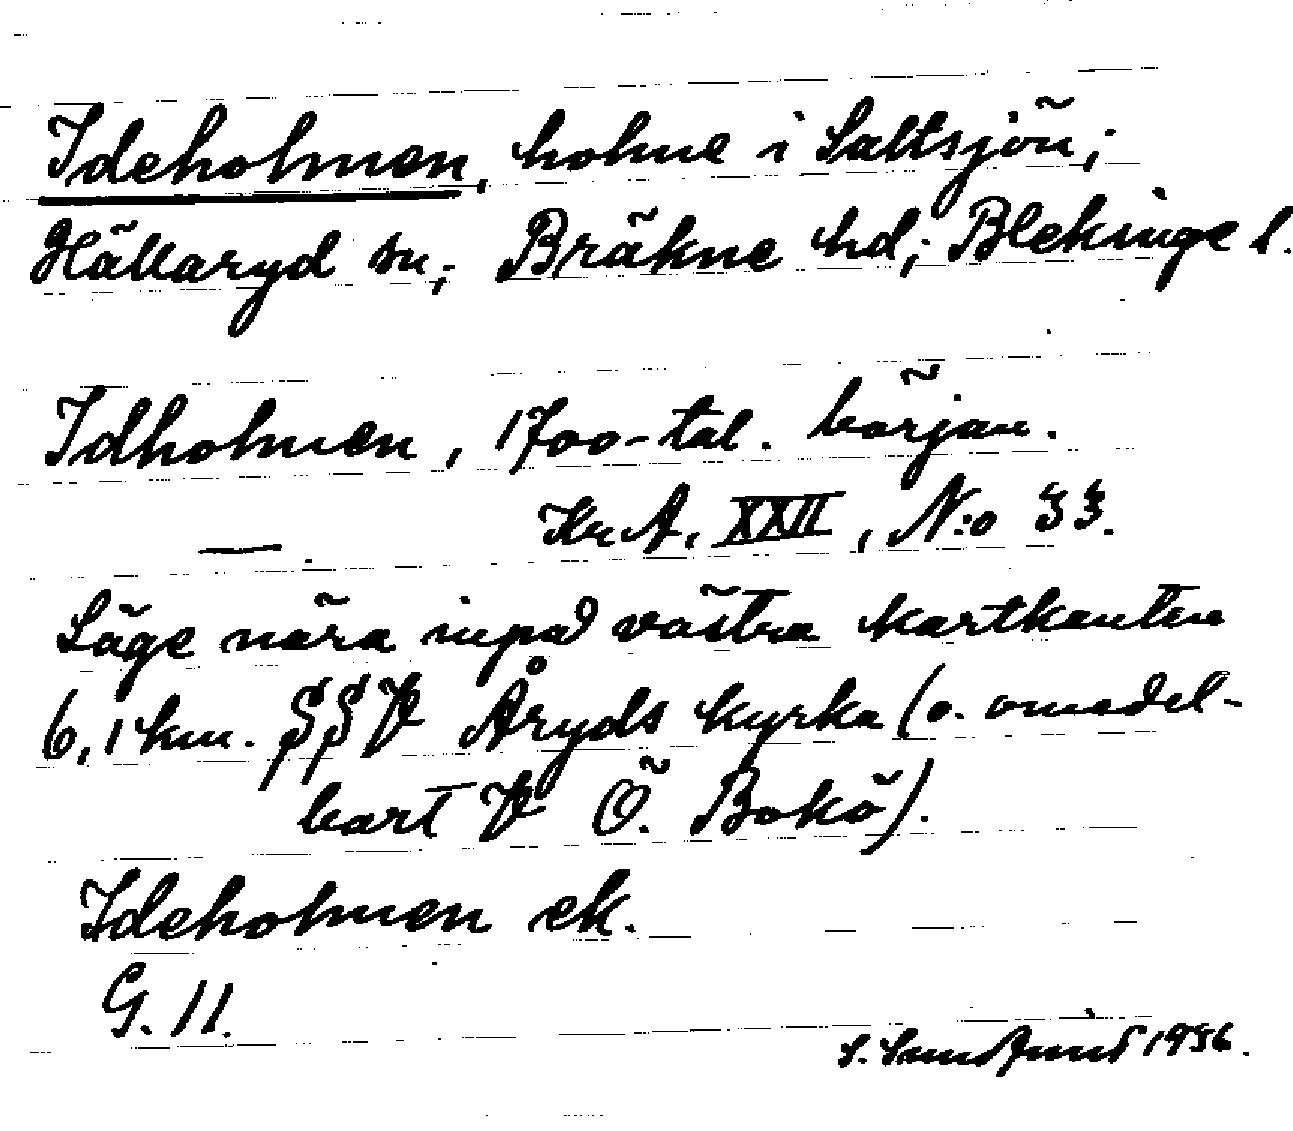 Ideholmen, holme i Saltsjön;
Hällaryd sn; Bräkne hd; Blekinge l.
Idholmen, 1700-tal. början.
— . KrA, XXII, N:o 33.
Läge nära inpå västra kartkanten
6,1 km. SSV Åryds kyrka (o. omedel-
bart V Ö. Bokö).
Ideholmen ek.
G. 11.
S. 1936.